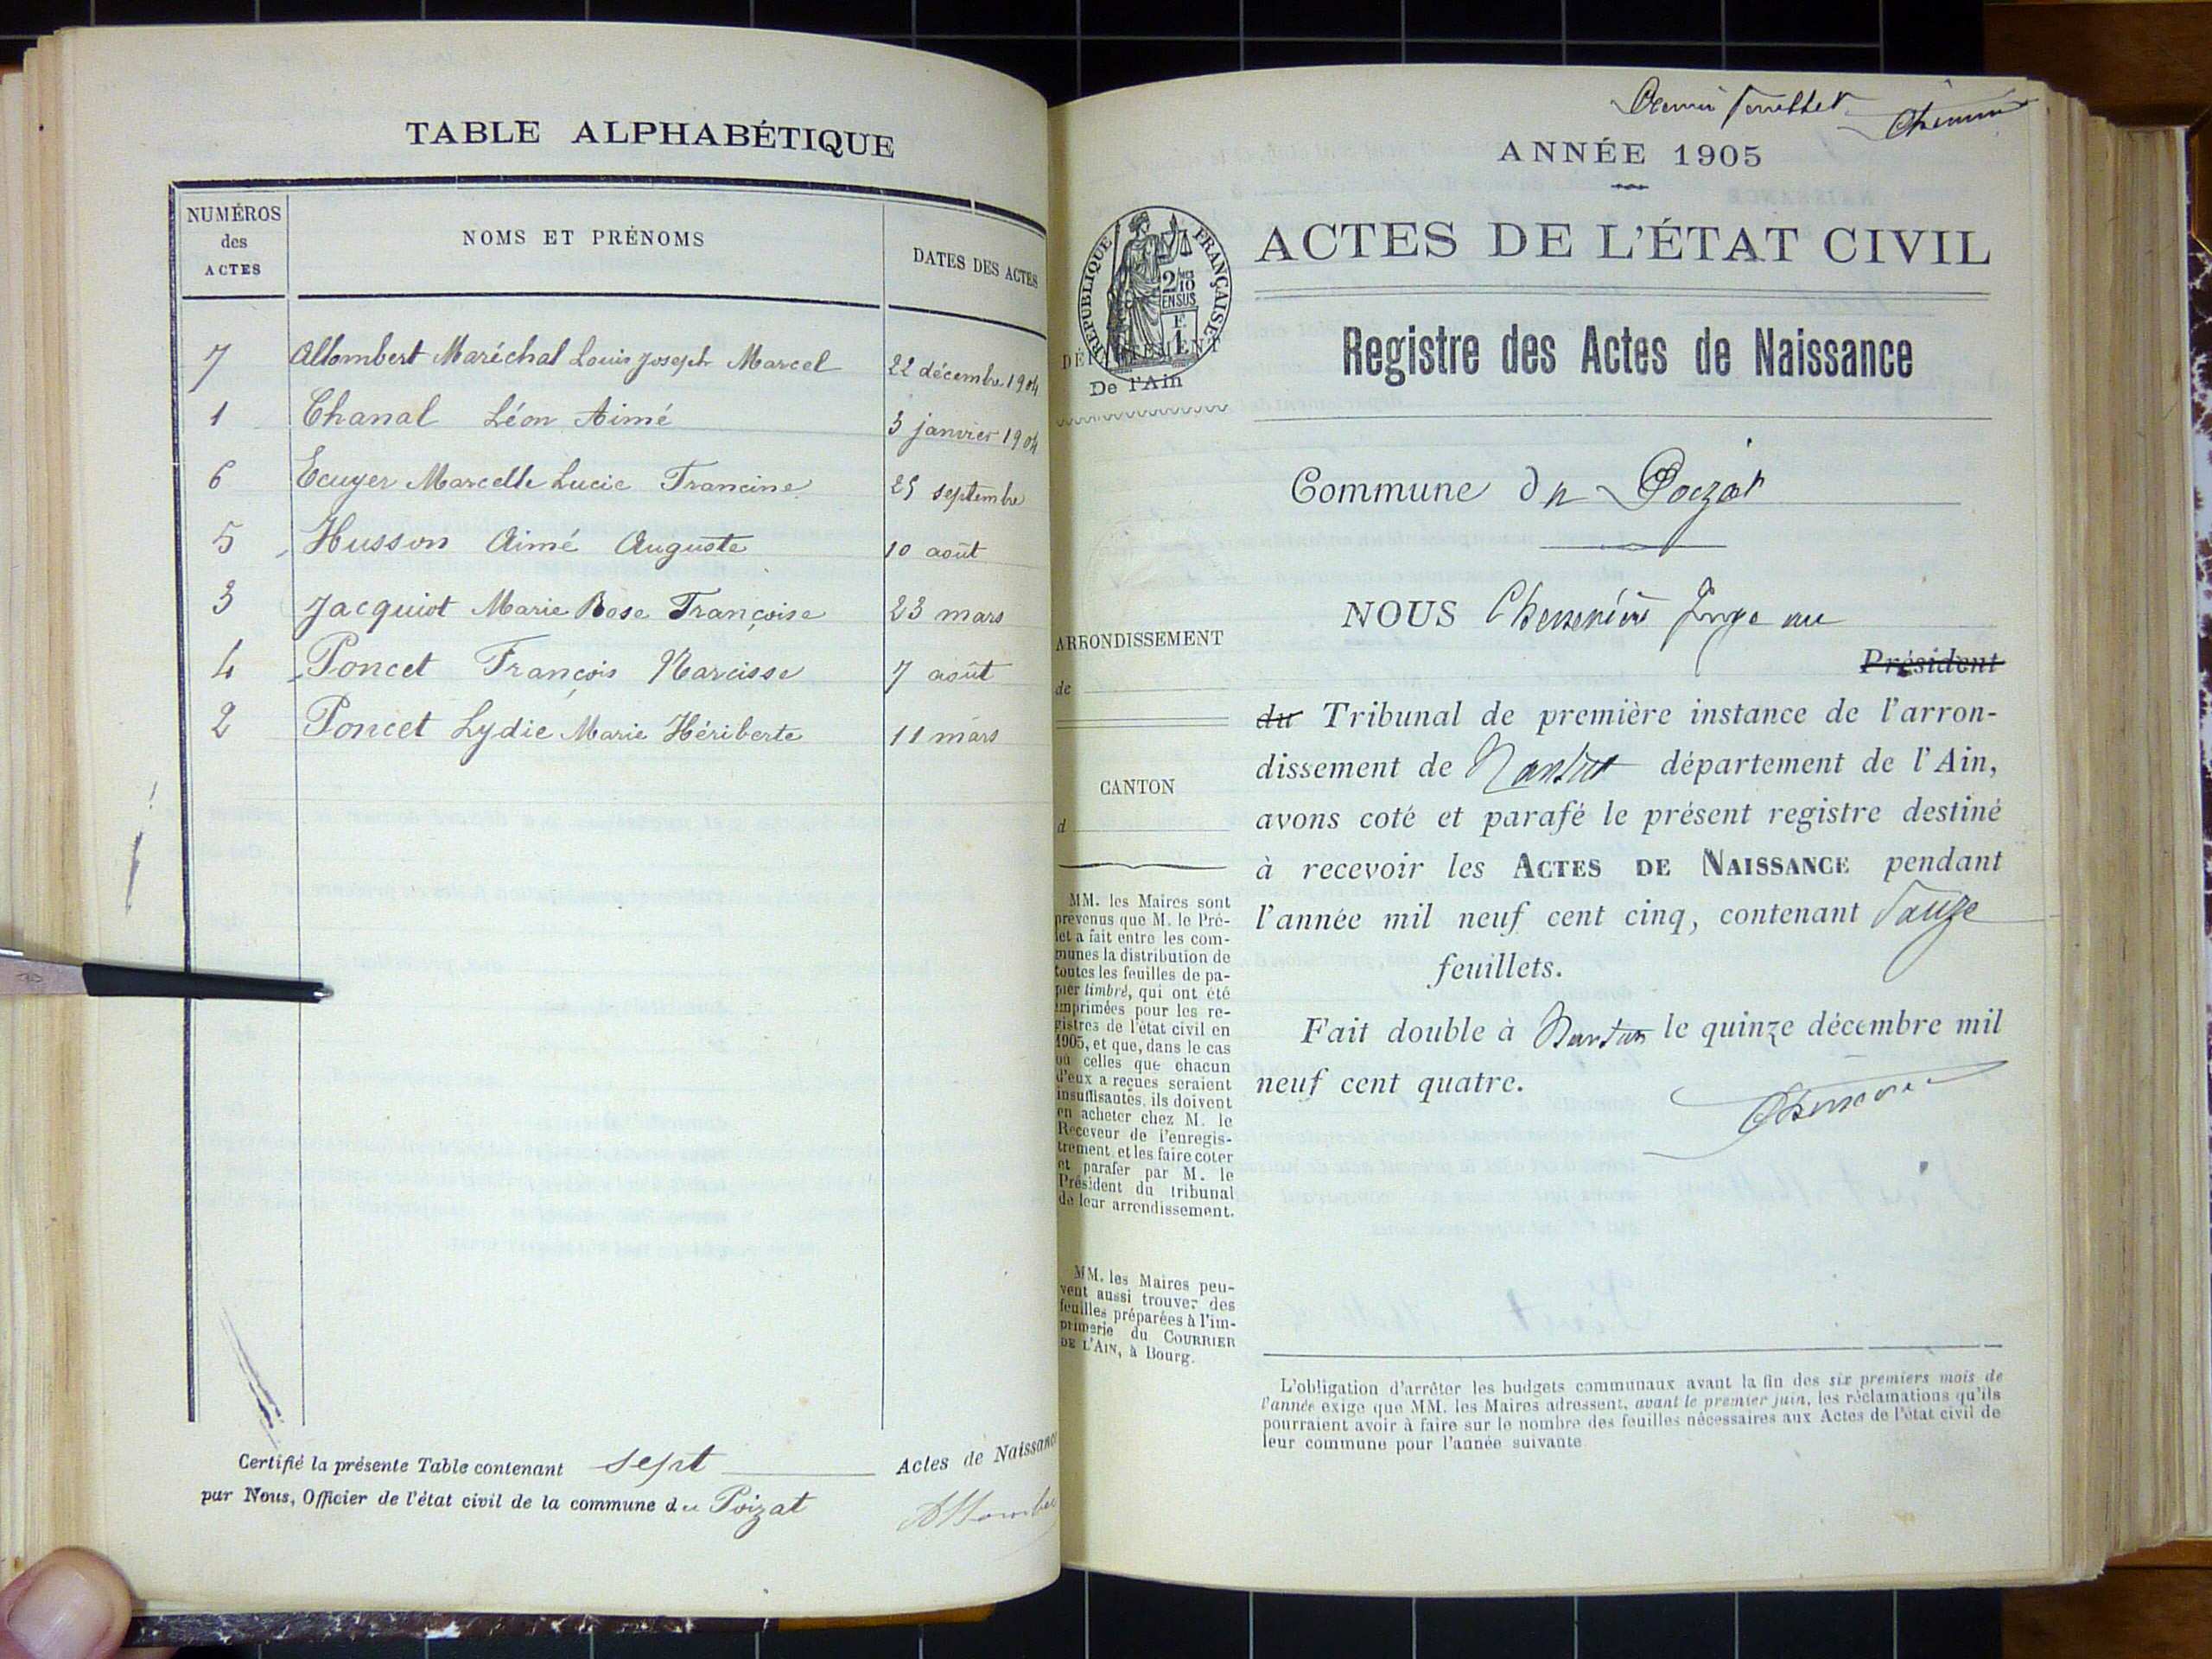 TABLE ALPHABÉTIQUE
NUMÉROS
des
ACTES
NOMS ET PRÉNOMS
DATES DES ACTES
7 Allombert Maréchal Louis Joseph Marcel 22 décembre 1904
1 Chanal Léon Aimé 3 janvier 1904
6 Ecuyer Marcelle Lucie Francine 25 septembre
5 Husson Aimé Auguste 10 août
3 Jacquiot Marie Rose Françoise 23 mars
4 Poncet François Narcisse 7 août
2 Poncet Lydie Marie Hériberte 11 mars
Certifié la présente Table contenant sept Actes de Naissance
par Nous, Officier de l'état civil de la commune du Poizat
ANNÉE 1905
ACTES DE L'ÉTAT CIVIL
Registre des Actes de Naissance
Commune du Poizat
NOUS Juge au
Président
du Tribunal de première instance de l'arron-
dissement de Nantua département de l'Ain,
avons coté et parafé le présent registre destiné
à recevoir les ACTES DE NAISSANCE pendant
l'année mil neuf cent cinq, contenant
feuillets.
Fait double à Nantua le quinze décembre mil
neuf cent quatre.
L'obligation d'arrêter les budgets communaux avant la fin des six premiers mois de
l'année exige que MM. les Maires adressent, avant le premier juin, les réclamations qu'ils
pourraient avoir à faire sur le nombre des feuilles nécessaires aux Actes de l'état civil de
leur commune pour l'année suivante
RÉPUBLIQUE FRANÇAISE
2/10
EN SUS
E
1
DÉPARTEMENT
De l'Ain
ARRONDISSEMENT
de
CANTON
d
MM. les Maires sont
prévenus que M. le Pré-
fet a fait entre les com-
munes la distribution de
toutes les feuilles de pa-
pier timbré, qui ont été
imprimées pour les re-
gistres de l'état civil en
1905, et que, dans le cas
où celles que chacun
d'eux a reçues seraient
insuffisantes, ils doivent
en acheter chez M. le
Receveur de l'enregis-
trement et les faire coter
et parafer par M. le
Président du tribunal
de leur arrondissement.
MM. les Maires peu-
vent aussi trouver des
feuilles préparées à l'im-
primerie du COURRIER
DE L'AIN, à Bourg.